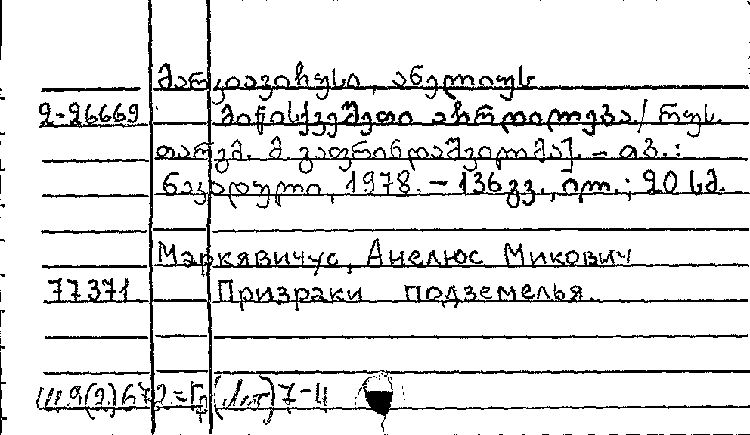 მარკიავიჩუსი, ანელიუს
2-26669 მიწისქვეშეთი აჩრდილება/ რუს.
თარგმ. მ. გაფრინდაშვილმა]. – თბ. :
ნაკადული, 1978. – 136 გვ., ილ.; 20 სმ.
Маркявичус, Анелюс Микович
77371 Призраки подземелья.